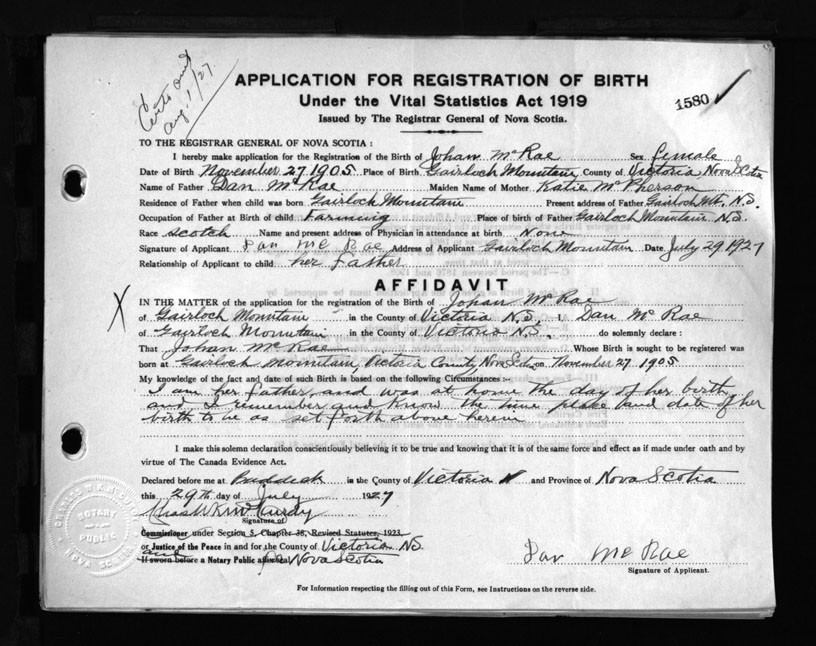 Certs and
Aug 1/27
APPLICATION FOR REGISTRATION OF BIRTH
Under the Vital Statistics Act 1919
1580
Issued by The Registrar General of Nova Scotia.
TO THE REGISTRAR GENERAL OF NOVA SCOTIA :
I hereby make application for the Registration of the Birth of Johan McRae Sex female
Date of Birth November 27 1905 Place of Birth Gairloch Mountain, County of Victoria Nova Scotia
Name of Father Dan McRae Maiden Name of Mother Katie McPherson
Residence of Father when child was born Gairloch Mountain Present address of Father Gairloch Mt. N.S.
Occupation of Father at Birth of child Farming Place of birth of Father Gairloch Mountain N.S.
Race Scotch Name and present address of Physician in attendance at birth None
Signature of Applicant Dan McRae Address of Applicant Gairloch Mountain Date July 29 1927
Relationship of Applicant to child her father
AFFIDAVIT
X
IN THE MATTER of the application for the registration of the Birth of Johan McRae
of Gairloch Mountain in the County of Victoria N.S. I, Dan McRae
of Gairloch Mountain in the County of Victoria N.S. do solemnly declare :
That Johan McRae Whose Birth is sought to be registered was
born at Gairloch Mountain, Victoria County, Nova Scotia on November 27 1905
My knowledge of the fact and date of such Birth is based on the following Circumstances :-
I am her father, and was at home the day of her birth
and I remember and know the time place and date of her
birth to be as set forth above herein
I make this solemn declaration conscientiously believing it to be true and knowing that it is of the same force and effect as if made under oath and by
virtue of The Canada Evidence Act.
Declared before me at Baddeck in the County of Victoria and Province of Nova Scotia
this 29th day of July 1927
Chas W K McCurdy
Signature of
Commissioner under Section 5, Chapter 38, Revised Statutes, 1923,
or Justice of the Peace in and for the County of Victoria N.S.
and
If sworn before a Notary Public Nova Scotia
Dan McRae
Signature of Applicant.
For Information respecting the filling out of this Form, see Instructions on the reverse side.
NOTARY
PUBLIC
NOVA SCOTIA